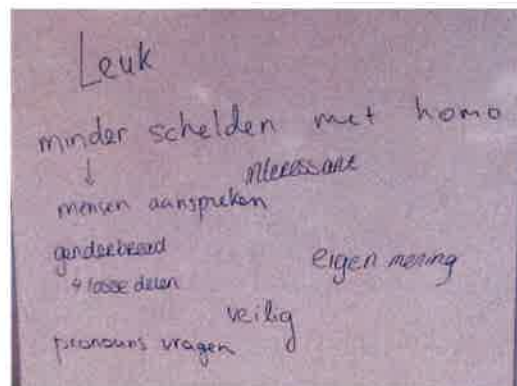 Leuk
minder schelden met homo
↓
interessant
mensen aanspreken
genderbreed
4 losse delen
eigen mening
veilig
pronouns vragen